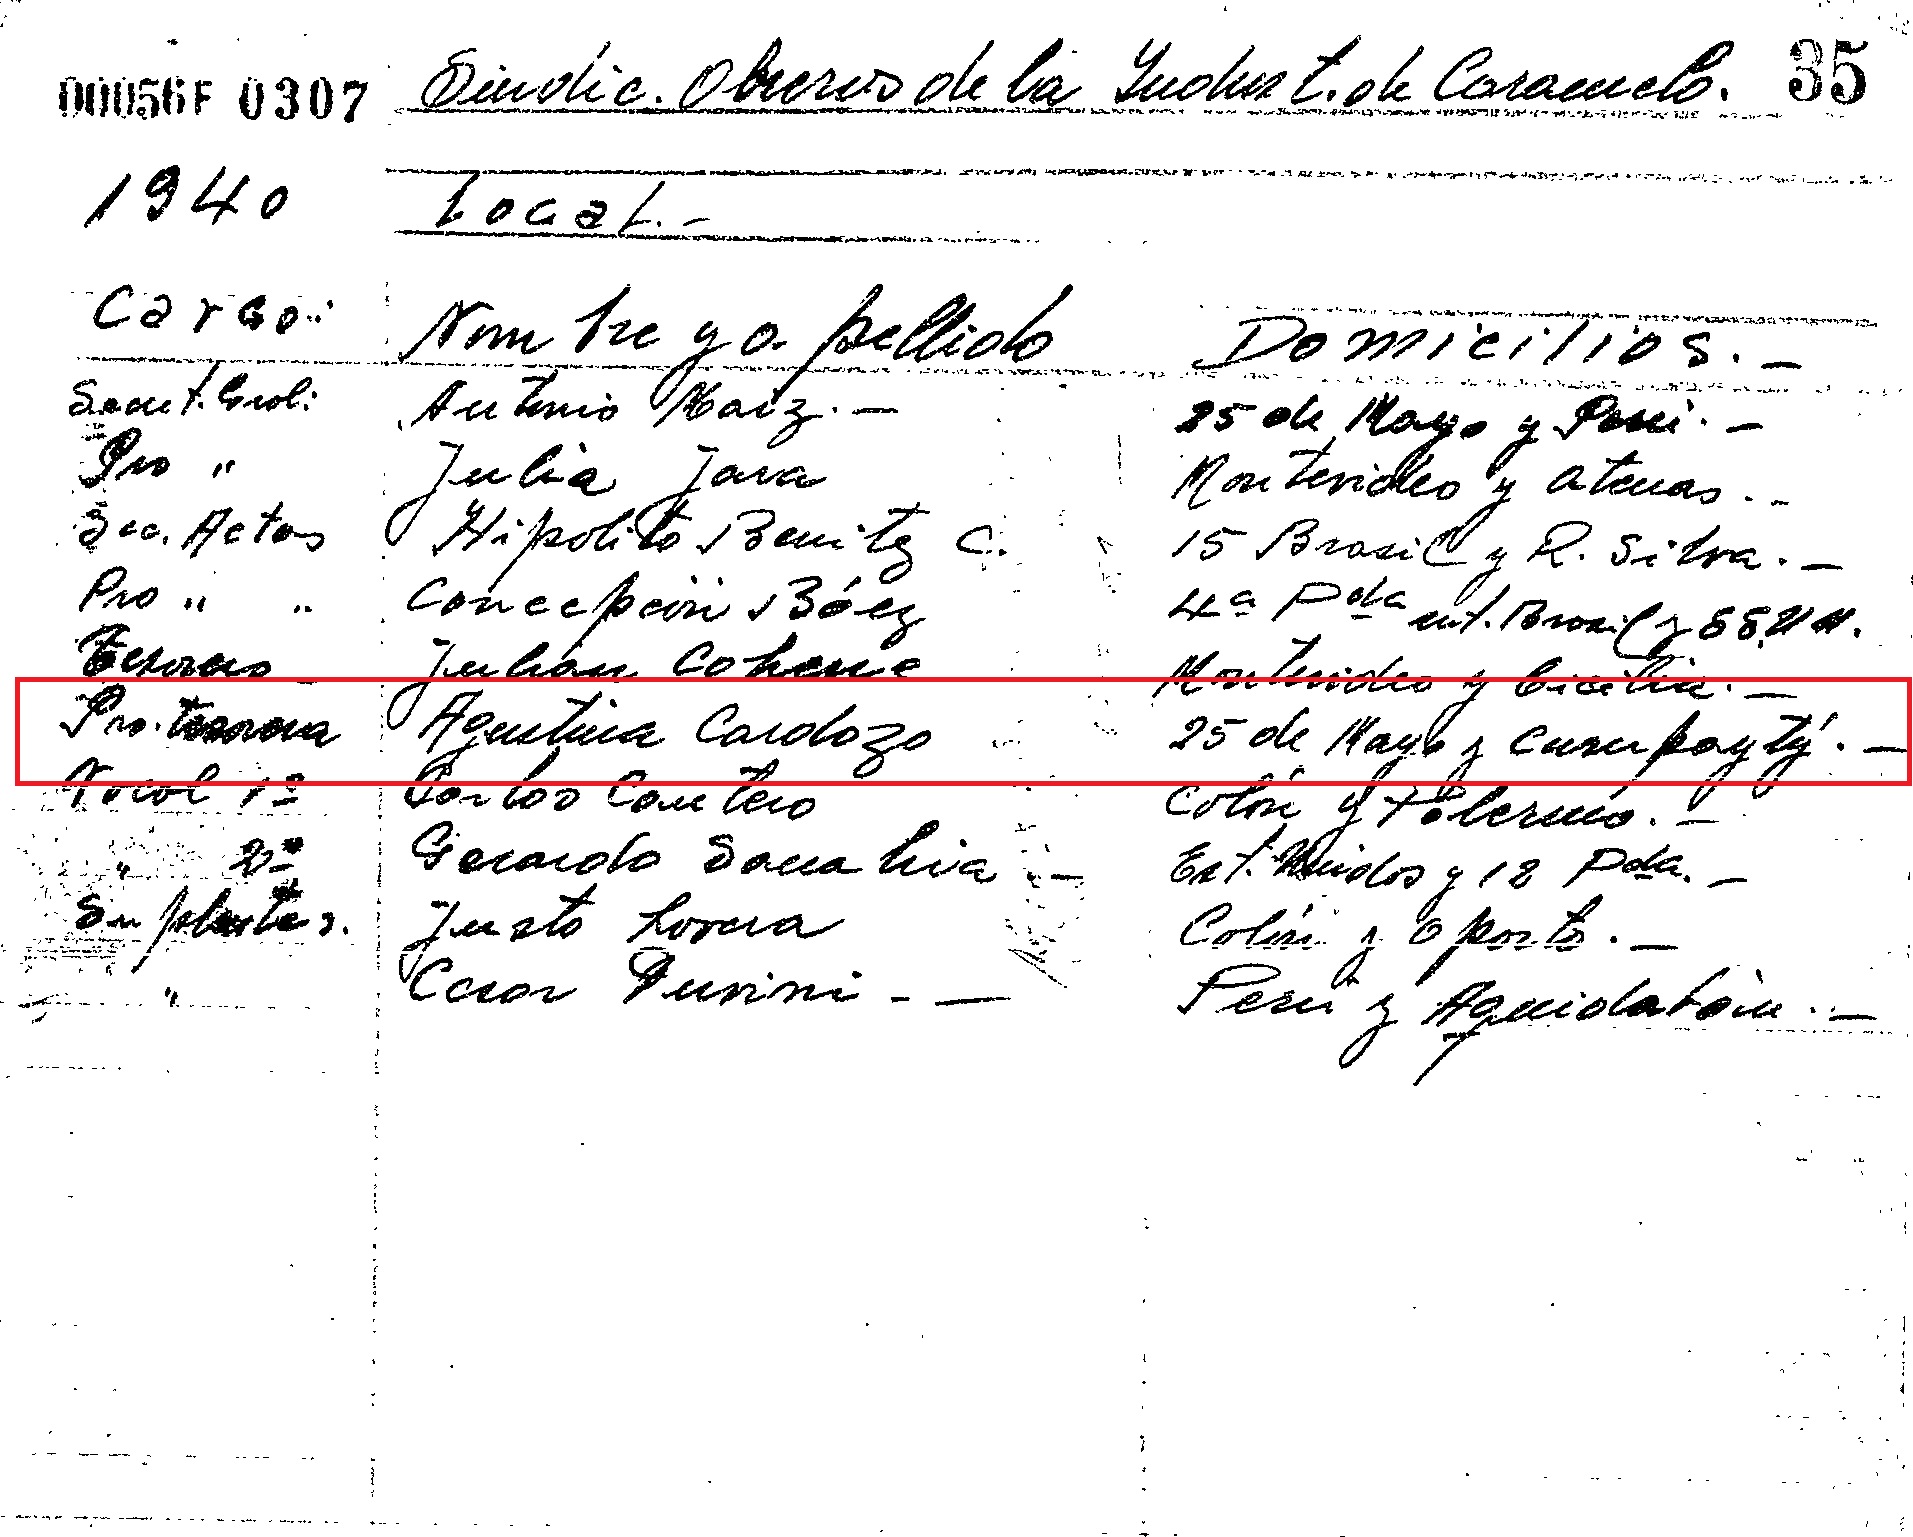 00056F 0307 Sindic. Obreros de la Indust. de Caramelo. 35
1940 Local.-
Cargo: Nombre y apellido Domicilios.-
Secret. Gral: Antonio Maiz.- 25 de Mayo y Perú.-
Pro " Julia Jara Montevideo y Atenas.-
Sec. Actas Hipolito Benitez C. 15 Brasil y R. Silva.-
Pro " " Concepción Báez 4ª Pda ent. Brasil y EE.UU.
Tesorero Julian Cohene Montevideo y Sicilia.-
Pro. tesorera Agustina Cardozo 25 de Mayo y Curupayty.-
Vocal 1º Carlos Cantero Colón y Palermo.-
" 2º Gerardo Sanabria - Est. Unidos y 12 Pda.-
Suplentes. Justo Lovera Colón y Oporto.-
" Cesar Durini - - Perú y Aquidabán.-